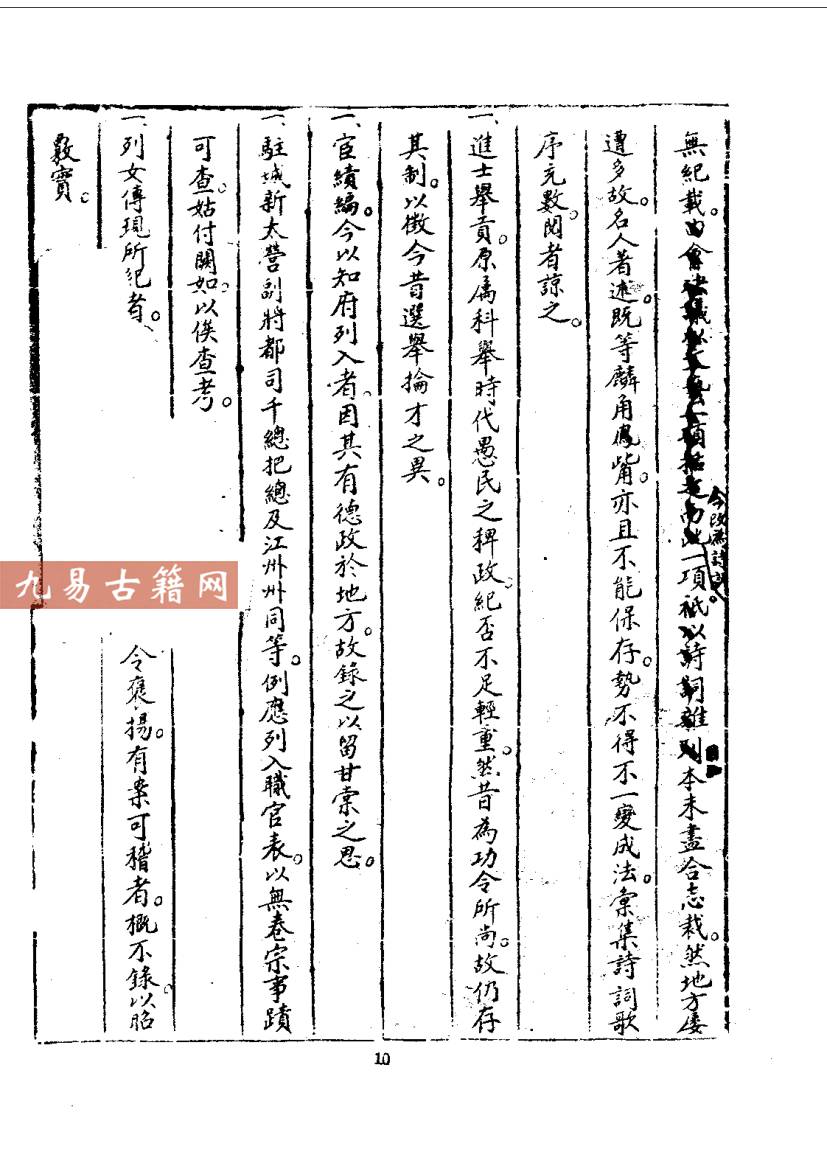 無紀載。由會決議以文藝一項括之而此一項祗以詩詞雜列本未盡合志裁。然地方屢
今改為詩文。
遭多故。名人著述。既等麟角鳳觜。亦且不能保存。勢不得不一變成法。彙集詩詞歌
序充數。閱者諒之。
一、進士舉貢。原屬科舉時代愚民之稗政。紀否不足輕重。然昔為功令所尚。故仍存
其制。以徵今昔選舉掄才之異。
一、宦績編。今以知府列入者。因其有德政於地方。故錄之以留甘棠之思。
一、駐城新太營副將都司千總把總及江州州同等。例應列入職官表。以無卷宗事蹟
可查。姑付闕如。以俟查考。
一、列女傳現所紀者。
令褒揚。有案可稽者。概不錄。以昭
覈實。
九易古籍网
10